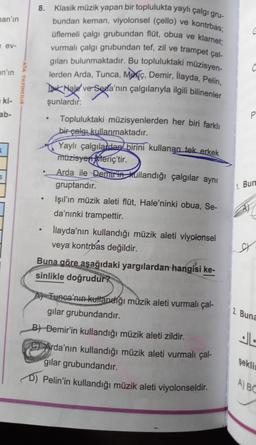 8. Klasik müzik yapan bir toplulukta yaylı çalgı gru-
bundan keman, viyolonsel (çello) ve kontrbas;
üflemeli çalgı grubundan flüt, obua ve klarnet;
vurmalı çalgı grubundan tef, zil ve trampet çal-
gıları bulunmaktadır. Bu topluluktaki müzisyen-
lerden Arda, Tunca, Meriç, Demir, İlayda, Pelin,
Işıl, Hale ve Seda'nın çalgılarıyla ilgili bilinenler
şunlardır:
• Topluluktaki müzisyenlerden her biri farklı
bir çalgı kullanmaktadır.
• Yaylı çalgılardan birini kullanan tek erkek
müzisyen Meriç'tir.
• Arda ile Demir'in kullandığı çalgılar aynı
gruptandır.
• Işıl'ın müzik aleti flüt, Hale'ninki obua, Se-
da'nınki trampettir.
• İlayda'nın kullandığı müzik aleti viyolonsel
veya kontrbas değildir.
Buna göre aşağıdaki yargılardan hangisi ke-
sinlikle doğrudur?
A) Tunca'nın kullandığı müzik aleti vurmalı çal-
gılar grubundandır.
B) Demir'in kullandığı müzik aleti zildir.
C) Arda'nın kullandığı müzik aleti vurmalı çal-
gılar grubundandır.
D) Pelin'in kullandığı müzik aleti viyolonseldir.
ev-
ki-
ab-
1. Bun
A)
C)
2. Buna
şekli
A) BC